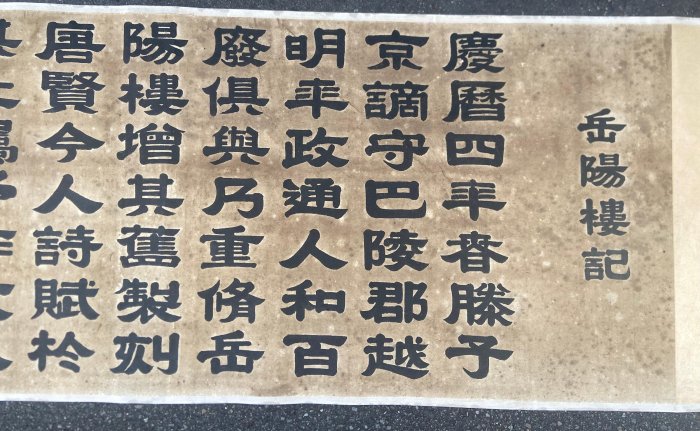 岳陽樓記
慶曆四年春滕子
京謫守巴陵郡越
明年政通人和百
廢俱興乃重脩岳
陽樓增其舊製刻
唐賢今人詩賦於
其上屬予作文